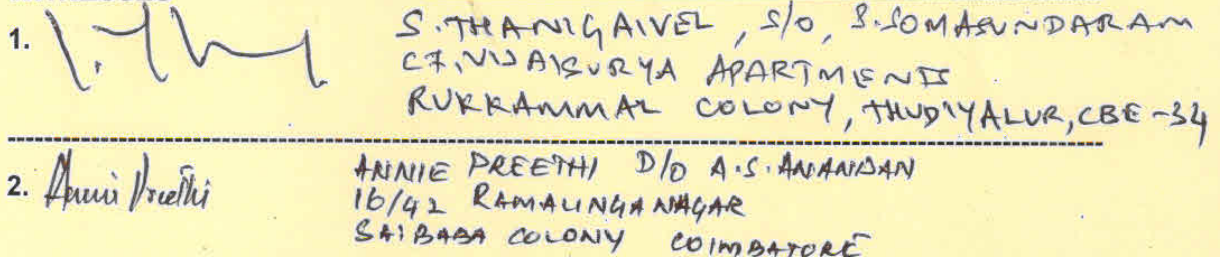 1. S. THANIGAIVEL, S/O, S. SOMASUNDARAM
C7, VIJAISURYA APARTMENTS
RUKKAMMAL COLONY, THUDIYALUR, CBE-34
2. Annie Preethi ANNIE PREETHI D/O A.S. ANANDAN
16/42 RAMALINGA NAGAR
SAIBABA COLONY COIMBATORE